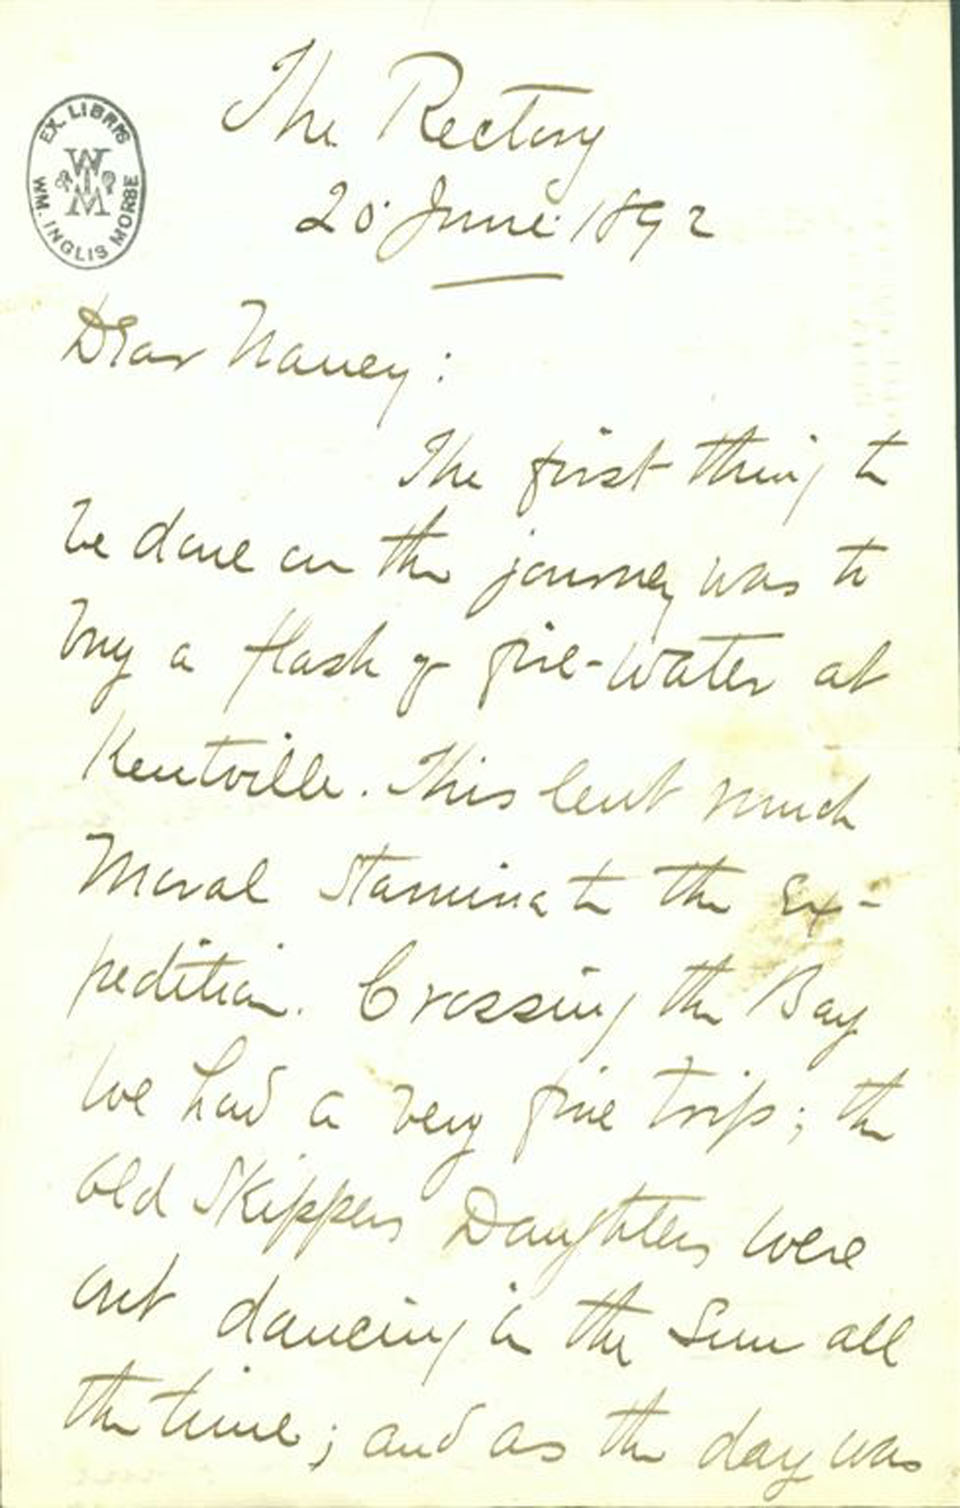 The Rectory
20 June 1892
EX. LIBRIS
WIM
WM. INGLIS MORSE
Dear Nancy:
The first thing to
be done on the journey was to
buy a flask of fire-water at
Kentville. This lent much
Moral Stamina to the Ex-
pedition. Crossing the Bay
we had a very fine trip; the
Old Skippers Daughters were
out dancing in the Sun all
the time; and as the day was